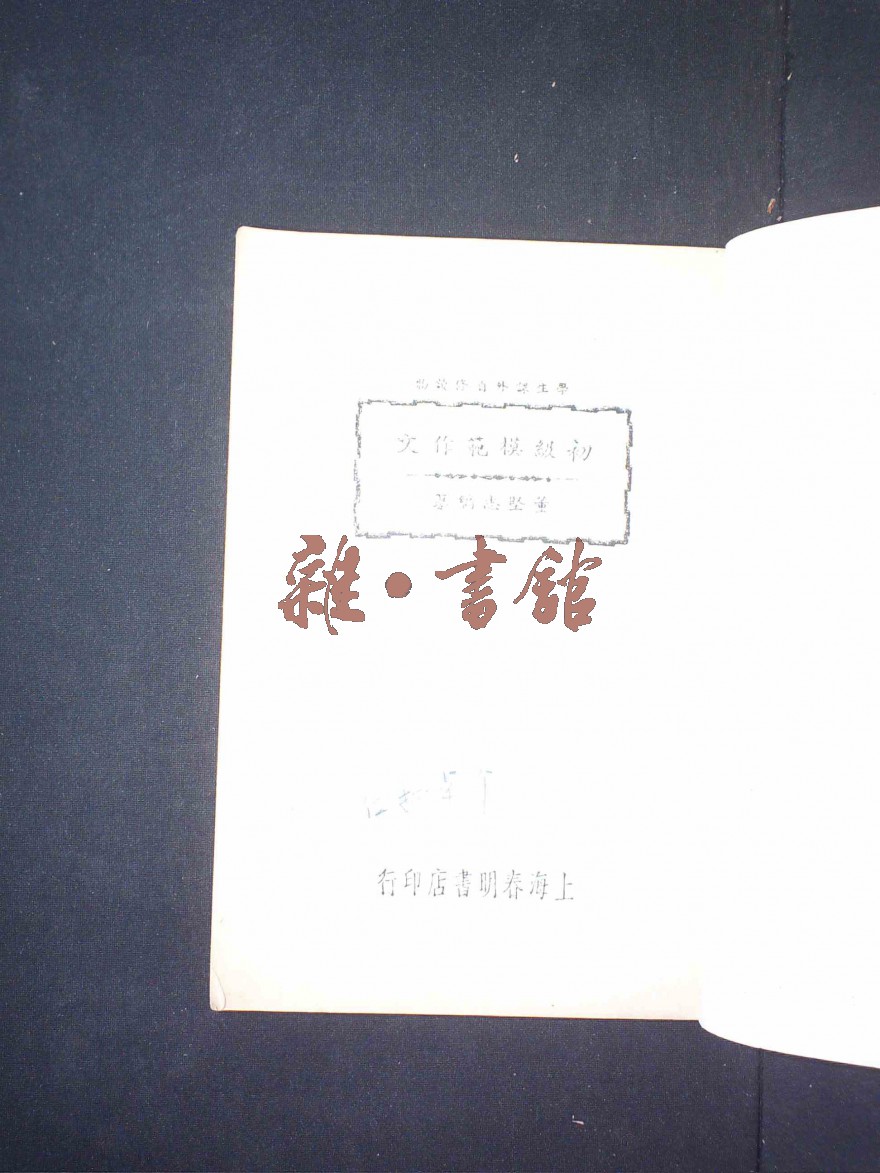 學生課外自修讀物
初級模範作文
董堅志編著
雜·書館
上海春明書店印行